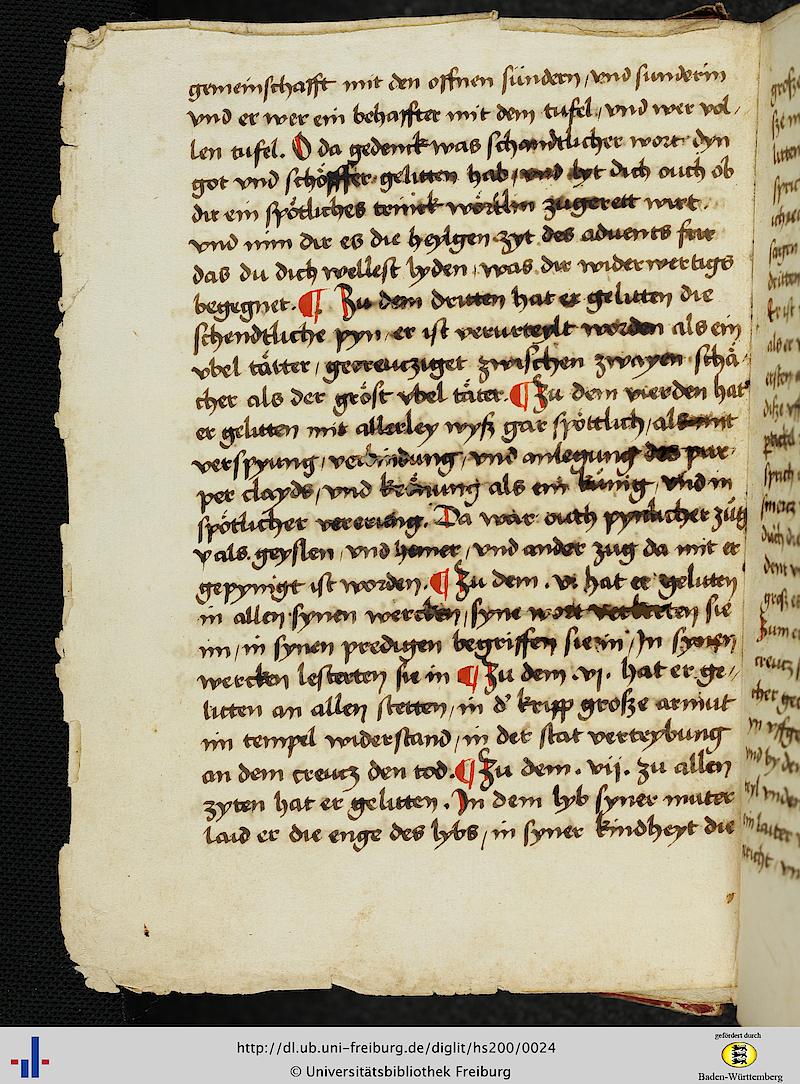 gemeinschafft mit den offnen sündern / vnd sunderin
vnd er wer ein behaffter mit dem tufel / vnd wer vol /
len tufel. O da gedenck was schandtlicher wort dyn
got vnd schöpffer gelitten hab / vnd lyt dich ouch ob
dir ein spötliches trinck wörtlin zugerett wirt.
vnd nim dir es die heylgen zyt des aduents für
das du dich wellest lyden / was dir widerwertigs
begegnet. ¶ Zu dem dritten hat er gelitten die
schendtliche pyn / er ist verurteylt worden als ein
vbel tätter / gecreucziget zwischen zwayen schä /
cher als der gröst vbel täter. ¶ Zu dem vierden hat
er gelitten mit allerley wyß gar spöttlich / als mit
verspyung / verbindung / vnd anlegung des pur /
per clayds / vnd krönung als ein künig / vnd in
spötlicher vererung. Da war ouch pynlicher züg
v als. geyslen / vnd hamer / vnd ander zug da mit er
gepynigt ist worden. ¶ Zu dem . v. hat er gelitten
in allen synen wercken / syne wort verkerten sie
im / in synen predigen begriffen sie in / In synen
wercken lesterten sie in ¶ Zu dem .vj. hat er ge /
litten an allen stetten / in d' kripp große armut
im tempel widerstand / in der stat vertrybung
an dem creucz den tod. ¶ Zu dem . vij. zu allen
zyten hat er gelitten. In dem lyb syner muter
laid er die enge des lybs / in syner kindheyt die
http://dl.ub.uni-freiburg.de/diglit/hs200/0024
© Universitätsbibliothek Freiburg
gefördert durch
Baden-Württemberg